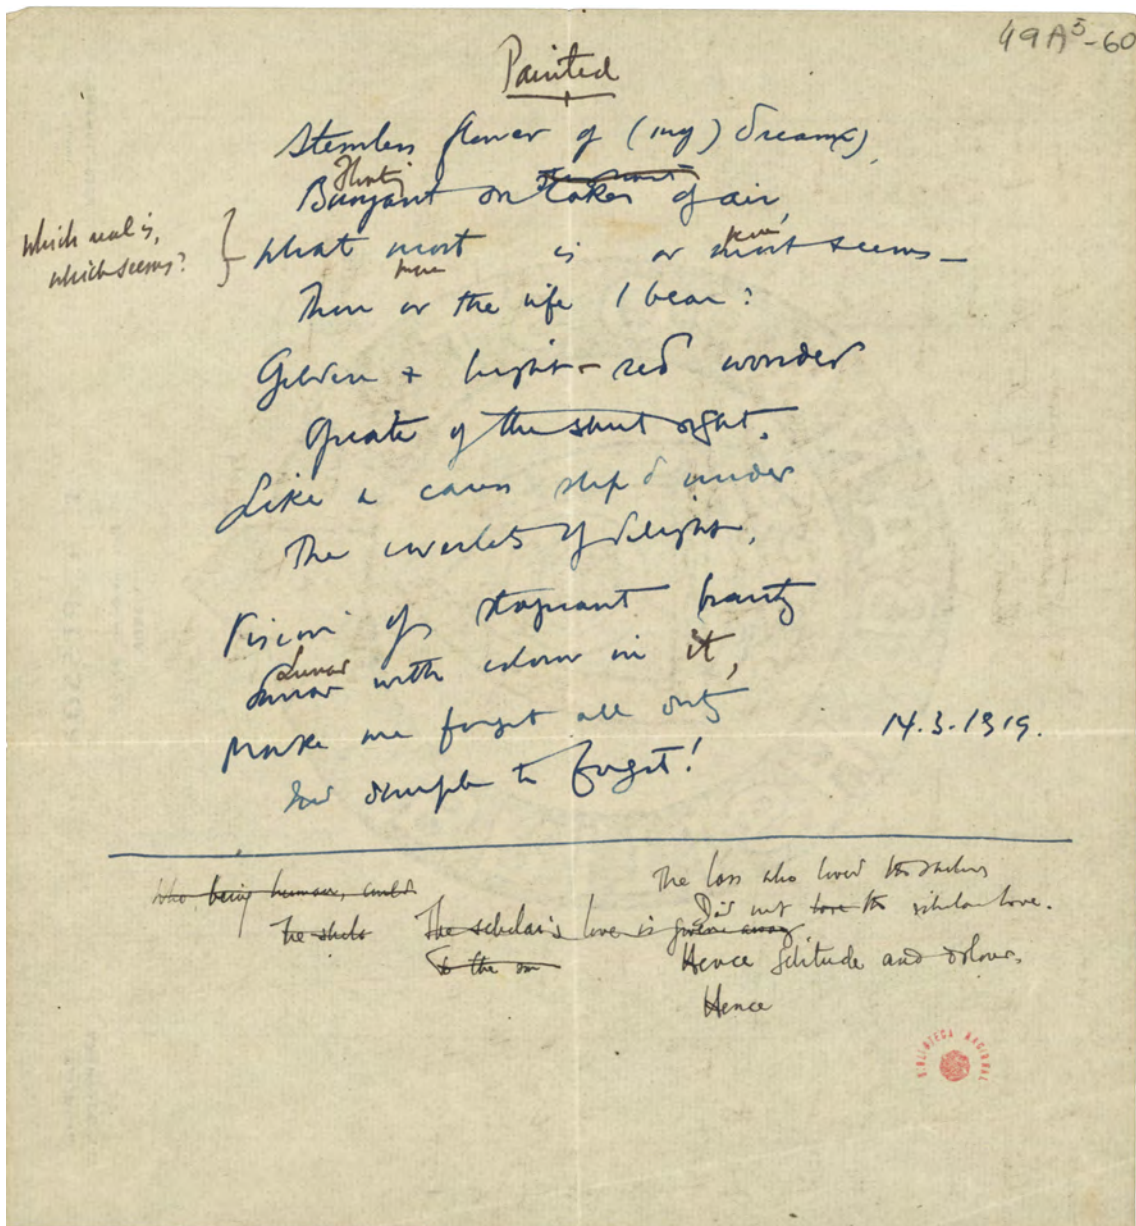 49A5-60
Painted
Stemless flower of (my) dream(s),
Floating
Buoyant on lakes of air,
which real is,
which seems?
What most is or most seems—
more
Thou or the life I bear?
Golden + bright-red wonder
Opiate of the shut sight,
Like a cover slip'd under
The coverlets of delight,
Vision of stagnant beauty
Lunar
Lunar with colour in it,
Make me forget all duty
And to forget!
14.3.1919.
who, being human, could
The schol The scholar's love is given away
to the
The lass who loved the scholar
Did not love the scholar love.
Hence solitude and dolour,
Hence
BIBLIOTECA NACIONAL